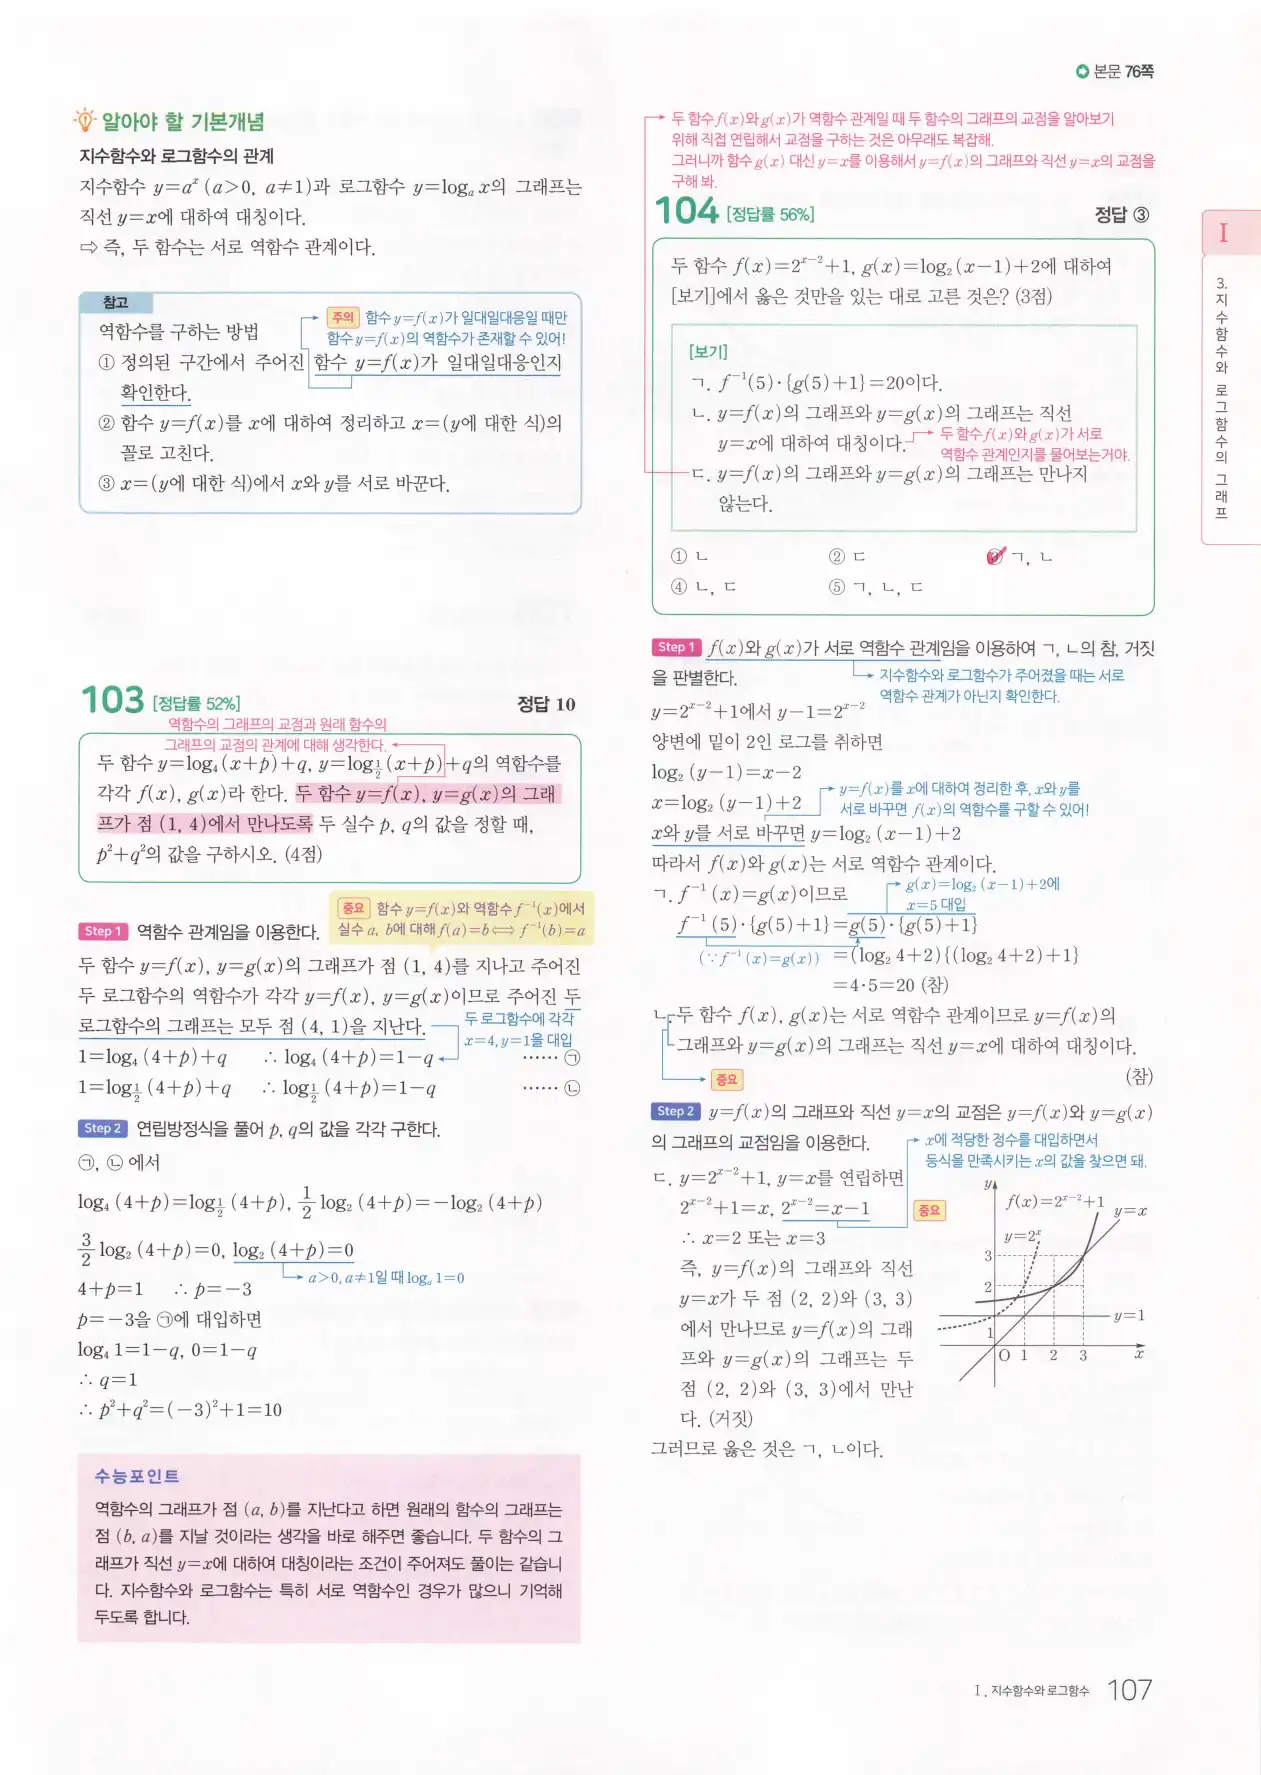 본문 76쪽
알아야 할 기본개념
지수함수와 로그함수의 관계
지수함수 y=aˣ (a>0, a≠1)과 로그함수 y=logₐ x의 그래프는
직선 y=x에 대하여 대칭이다.
⇨ 즉, 두 함수는 서로 역함수 관계이다.
참고
역함수를 구하는 방법
주의 함수 y=f(x)가 일대일대응일 때만
함수 y=f(x)의 역함수가 존재할 수 있어!
① 정의된 구간에서 주어진 함수 y=f(x)가 일대일대응인지
확인한다.
② 함수 y=f(x)를 x에 대하여 정리하고 x=(y에 대한 식)의
꼴로 고친다.
③ x=(y에 대한 식)에서 x와 y를 서로 바꾼다.
103 [정답률 52%] 정답 10
역함수의 그래프의 교점과 원래 함수의
그래프의 교점의 관계에 대해 생각한다.
두 함수 y=log₄(x+p)+q, y=log_{1/2}(x+p)+q의 역함수를
각각 f(x), g(x)라 한다. 두 함수 y=f(x), y=g(x)의 그래
프가 점 (1, 4)에서 만나도록 두 실수 p, q의 값을 정할 때,
p²+q²의 값을 구하시오. (4점)
중요 함수 y=f(x)와 역함수 f⁻¹(x)에서
실수 a, b에 대해 f(a)=b⟺f⁻¹(b)=a
Step 1 역함수 관계임을 이용한다.
두 함수 y=f(x), y=g(x)의 그래프가 점 (1, 4)를 지나고 주어진
두 로그함수의 역함수가 각각 y=f(x), y=g(x)이므로 주어진 두
로그함수의 그래프는 모두 점 (4, 1)을 지난다.
두 로그함수에 각각
x=4, y=1을 대입
1=log₄(4+p)+q ∴ log₄(4+p)=1−q …… ㉠
1=log_{1/2}(4+p)+q ∴ log_{1/2}(4+p)=1−q …… ㉡
Step 2 연립방정식을 풀어 p, q의 값을 각각 구한다.
㉠, ㉡에서
log₄(4+p)=log_{1/2}(4+p), 1/2 log₂(4+p)=−log₂(4+p)
3/2 log₂(4+p)=0, log₂(4+p)=0
a>0, a≠1일 때 logₐ 1=0
4+p=1 ∴ p=−3
p=−3을 ㉠에 대입하면
log₄ 1=1−q, 0=1−q
∴ q=1
∴ p²+q²=(−3)²+1=10
수능포인트
역함수의 그래프가 점 (a, b)를 지난다고 하면 원래의 함수의 그래프는
점 (b, a)를 지날 것이라는 생각을 바로 해주면 좋습니다. 두 함수의 그
래프가 직선 y=x에 대하여 대칭이라는 조건이 주어져도 풀이는 같습니
다. 지수함수와 로그함수는 특히 서로 역함수인 경우가 많으니 기억해
두도록 합니다.
두 함수 f(x)와 g(x)가 역함수 관계일 때 두 함수의 그래프의 교점을 알아보기
위해 직접 연립해서 교점을 구하는 것은 아무래도 복잡해.
그러니까 함수 g(x) 대신 y=x를 이용해서 y=f(x)의 그래프와 직선 y=x의 교점을
구해 봐.
104 [정답률 56%] 정답 ③
두 함수 f(x)=2ˣ⁻²+1, g(x)=log₂(x−1)+2에 대하여
[보기]에서 옳은 것만을 있는 대로 고른 것은? (3점)
[보기]
ㄱ. f⁻¹(5)·{g(5)+1}=20이다.
ㄴ. y=f(x)의 그래프와 y=g(x)의 그래프는 직선
y=x에 대하여 대칭이다.
두 함수 f(x)와 g(x)가 서로
역함수 관계인지를 물어보는거야.
ㄷ. y=f(x)의 그래프와 y=g(x)의 그래프는 만나지
않는다.
① ㄴ ② ㄷ ③ ㄱ, ㄴ
④ ㄴ, ㄷ ⑤ ㄱ, ㄴ, ㄷ
Step 1 f(x)와 g(x)가 서로 역함수 관계임을 이용하여 ㄱ, ㄴ의 참, 거짓
을 판별한다.
지수함수와 로그함수가 주어졌을 때는 서로
역함수 관계가 아닌지 확인한다.
y=2ˣ⁻²+1에서 y−1=2ˣ⁻²
양변에 밑이 2인 로그를 취하면
log₂(y−1)=x−2
x=log₂(y−1)+2
y=f(x)를 x에 대하여 정리한 후, x와 y를
서로 바꾸면 f(x)의 역함수를 구할 수 있어!
x와 y를 서로 바꾸면 y=log₂(x−1)+2
따라서 f(x)와 g(x)는 서로 역함수 관계이다.
ㄱ. f⁻¹(x)=g(x)이므로
g(x)=log₂(x−1)+2에
x=5 대입
f⁻¹(5)·{g(5)+1}=g(5)·{g(5)+1}
(∵ f⁻¹(x)=g(x)) =(log₂4+2){(log₂4+2)+1}
=4·5=20 (참)
ㄴ. 두 함수 f(x), g(x)는 서로 역함수 관계이므로 y=f(x)의
그래프와 y=g(x)의 그래프는 직선 y=x에 대하여 대칭이다.
중요 (참)
Step 2 y=f(x)의 그래프와 직선 y=x의 교점은 y=f(x)와 y=g(x)
의 그래프의 교점임을 이용한다.
x에 적당한 정수를 대입하면서
등식을 만족시키는 x의 값을 찾으면 돼.
ㄷ. y=2ˣ⁻²+1, y=x를 연립하면
2ˣ⁻²+1=x, 2ˣ⁻²=x−1
중요
∴ x=2 또는 x=3
즉, y=f(x)의 그래프와 직선
y=x가 두 점 (2, 2)와 (3, 3)
에서 만나므로 y=f(x)의 그래
프와 y=g(x)의 그래프는 두
점 (2, 2)와 (3, 3)에서 만난
다. (거짓)
그러므로 옳은 것은 ㄱ, ㄴ이다.
y
f(x)=2ˣ⁻²+1
y=x
y=2ˣ
3
2
y=1
1
O 1 2 3 x
I
3. 지수함수와 로그함수의 그래프
I. 지수함수와 로그함수 107